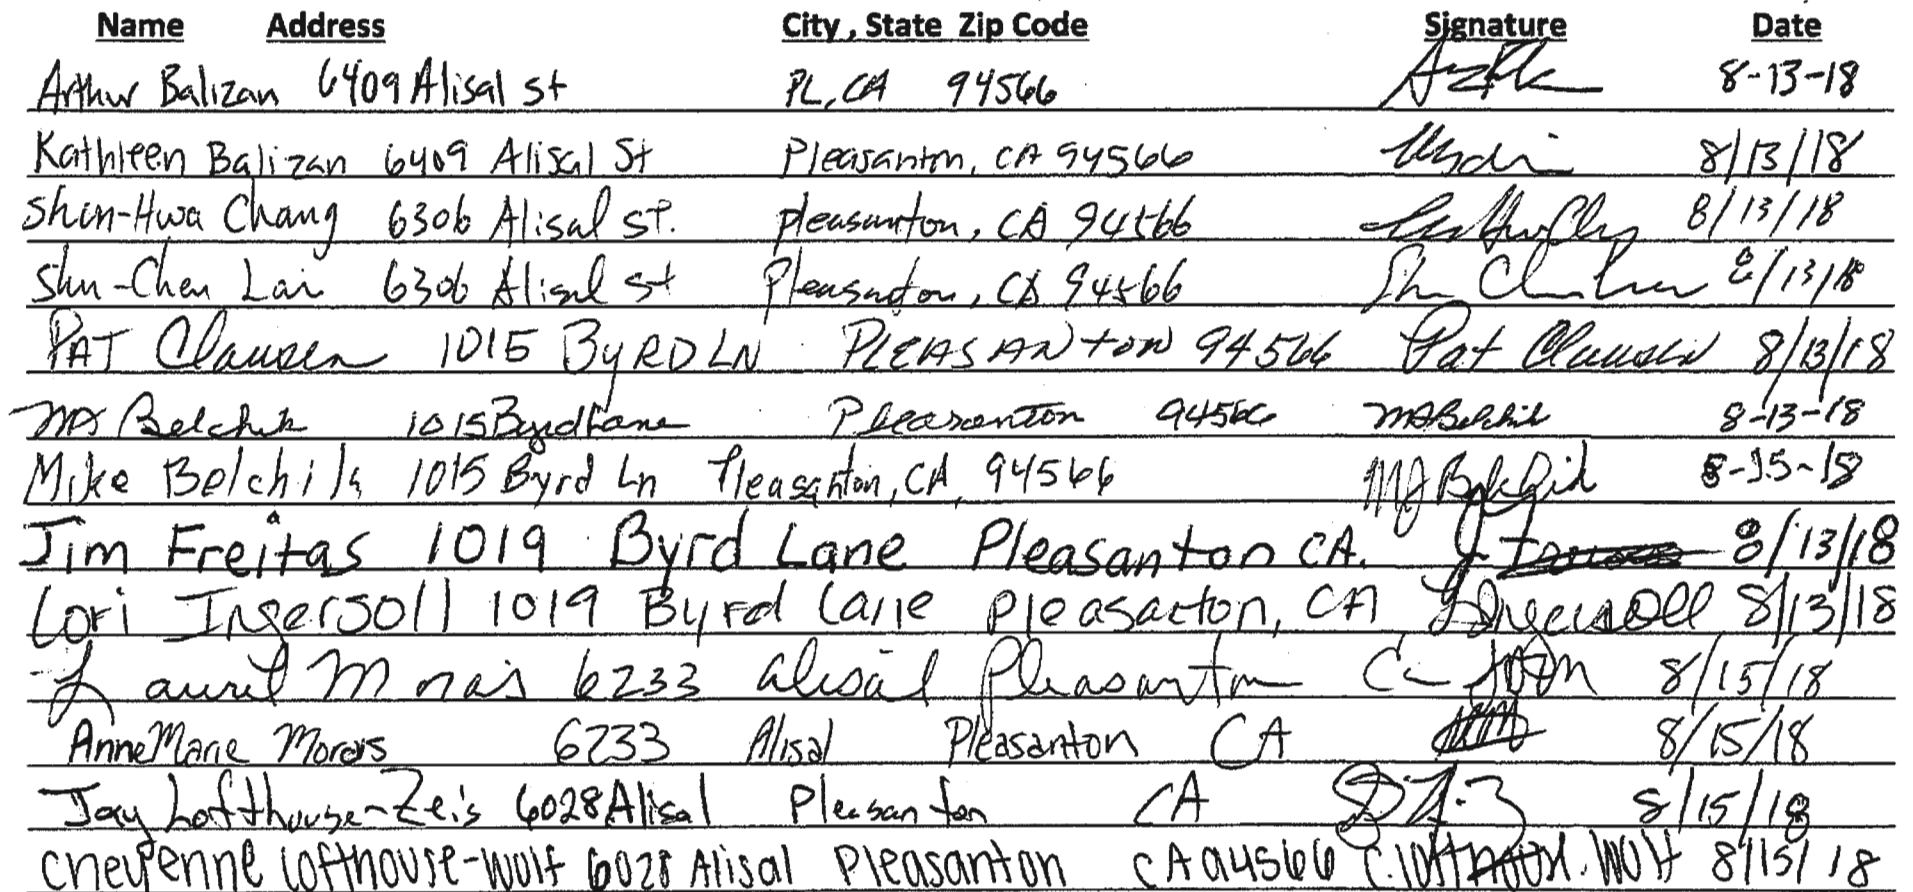 Name Address City, State Zip Code Signature Date
Arthur Balizan 6409 Alisal st PL, CA 94566 8-13-18
Kathleen Balizan 6409 Alisal St Pleasanton, CA 94566 8/13/18
Shin-Hwa Chang 6306 Alisal St. pleasanton, CA 94566 8/13/18
Shu-Chen Lai 6306 Alisal St Pleasanton, CA 94566 8/13/18
PAT Clausen 1015 BYRD LN PLEASANTON 94566 Pat Clausen 8/13/18
MA Belchik 1015 Byrd Lane Pleasanton 94566 MA Belchik 8-13-18
Mike Belchik 1015 Byrd Ln Pleasanton, CA, 94566 8-15-18
Jim Freitas 1019 Byrd Lane Pleasanton CA. 8/13/18
Lori Ingersoll 1019 Byrd Lane Pleasanton, CA L Ingersoll 8/13/18
Laurel Morais 6233 alisal Pleasanton Ca 8/15/18
AnneMarie Morais 6233 Alisal Pleasanton CA 8/15/18
Jay Lofthouse-Zeis 6028 Alisal Pleasanton CA 8/15/18
Cheyenne Lofthouse-Wolf 6028 Alisal Pleasanton CA 94566 8/15/18